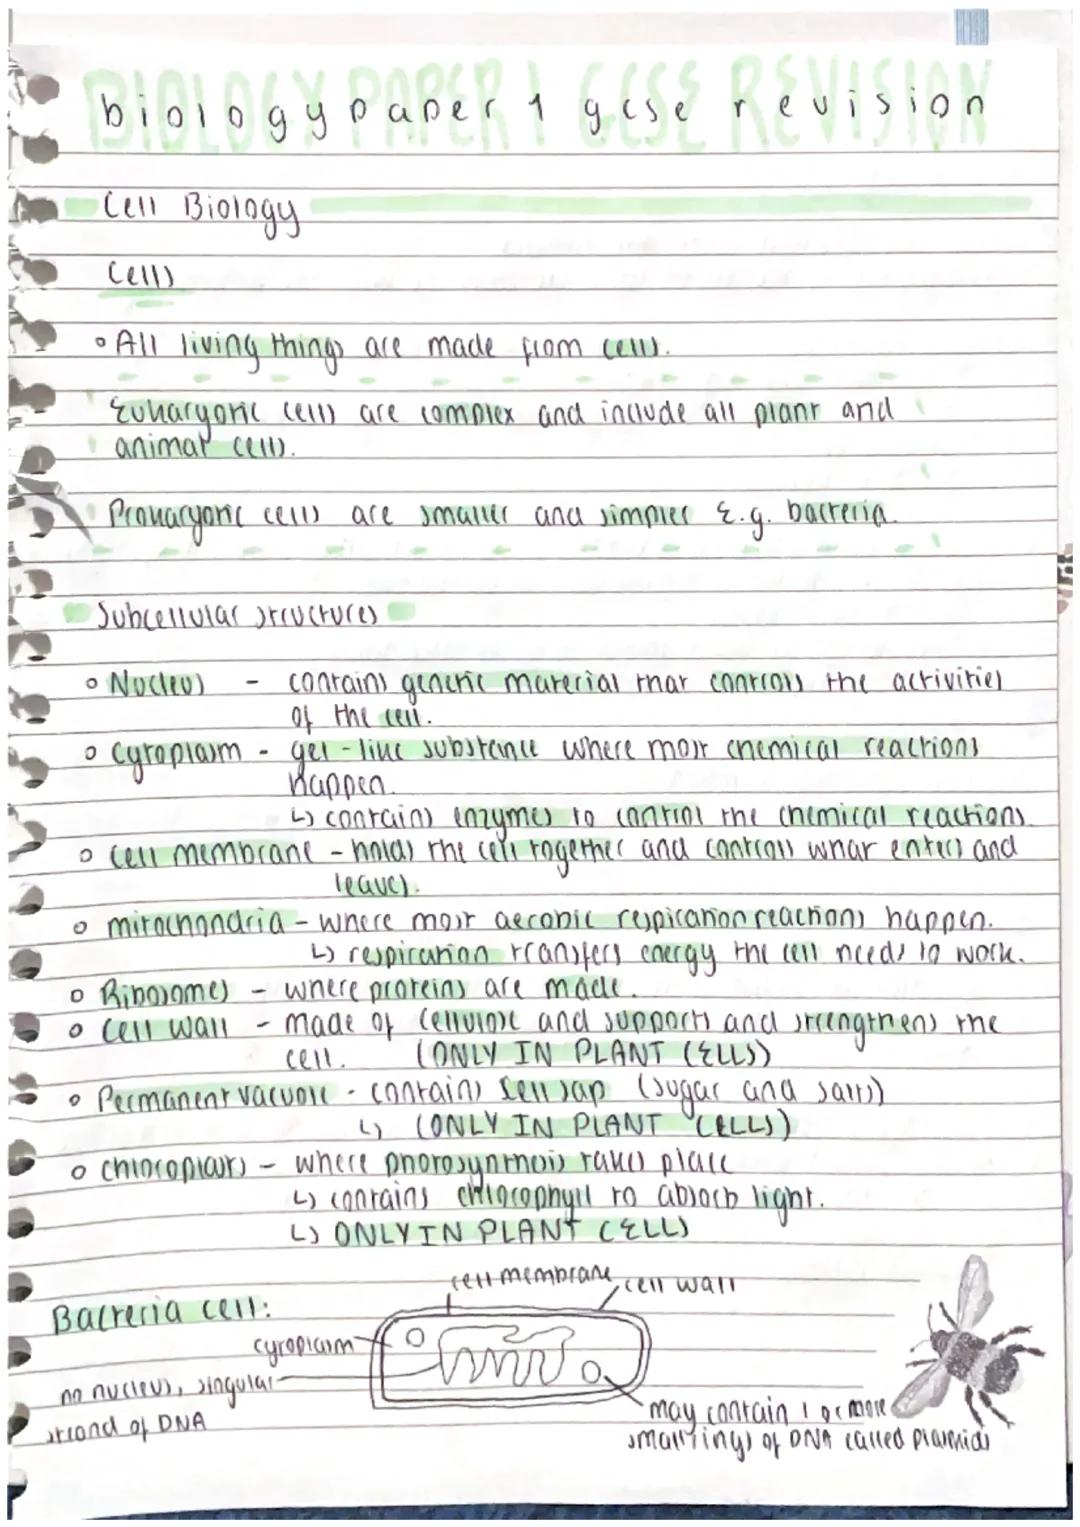 BIOLOGY PAPER 1 GCSE REVISION
biology paper 1 gcse revision
Cell Biology
Cells
• All living things are made from cells.
Eukaryotic cells are complex and include all plant and
animal cells.
Prokaryotic cells are smaller and simpler E.g. bacteria.
Subcellular structures
• Nucleus - contains genetic material that controls the activities
of the cell.
• cytoplasm - gel-like substance where most chemical reactions
happen.
↳ contains enzymes to control the chemical reactions.
• cell membrane - holds the cell together and controls what enters and
leaves.
• mitochondria - where most aerobic respiration reactions happen.
↳ respiration transfers energy the cell needs to work.
• Ribosomes - where proteins are made.
• cell wall - made of cellulose and supports and strengthens the
cell. (ONLY IN PLANT CELLS)
• Permanent vacuole - contains cell sap (sugar and salts)
↳ (ONLY IN PLANT CELLS)
• chloroplasts - where photosynthesis takes place
↳ contains chlorophyll to absorb light.
↳ ONLY IN PLANT CELLS
cell membrane cell wall
Bacteria cell:
cytoplasm
no nucleus, singular
strand of DNA
may contain 1 or more
small rings of DNA called plasmids